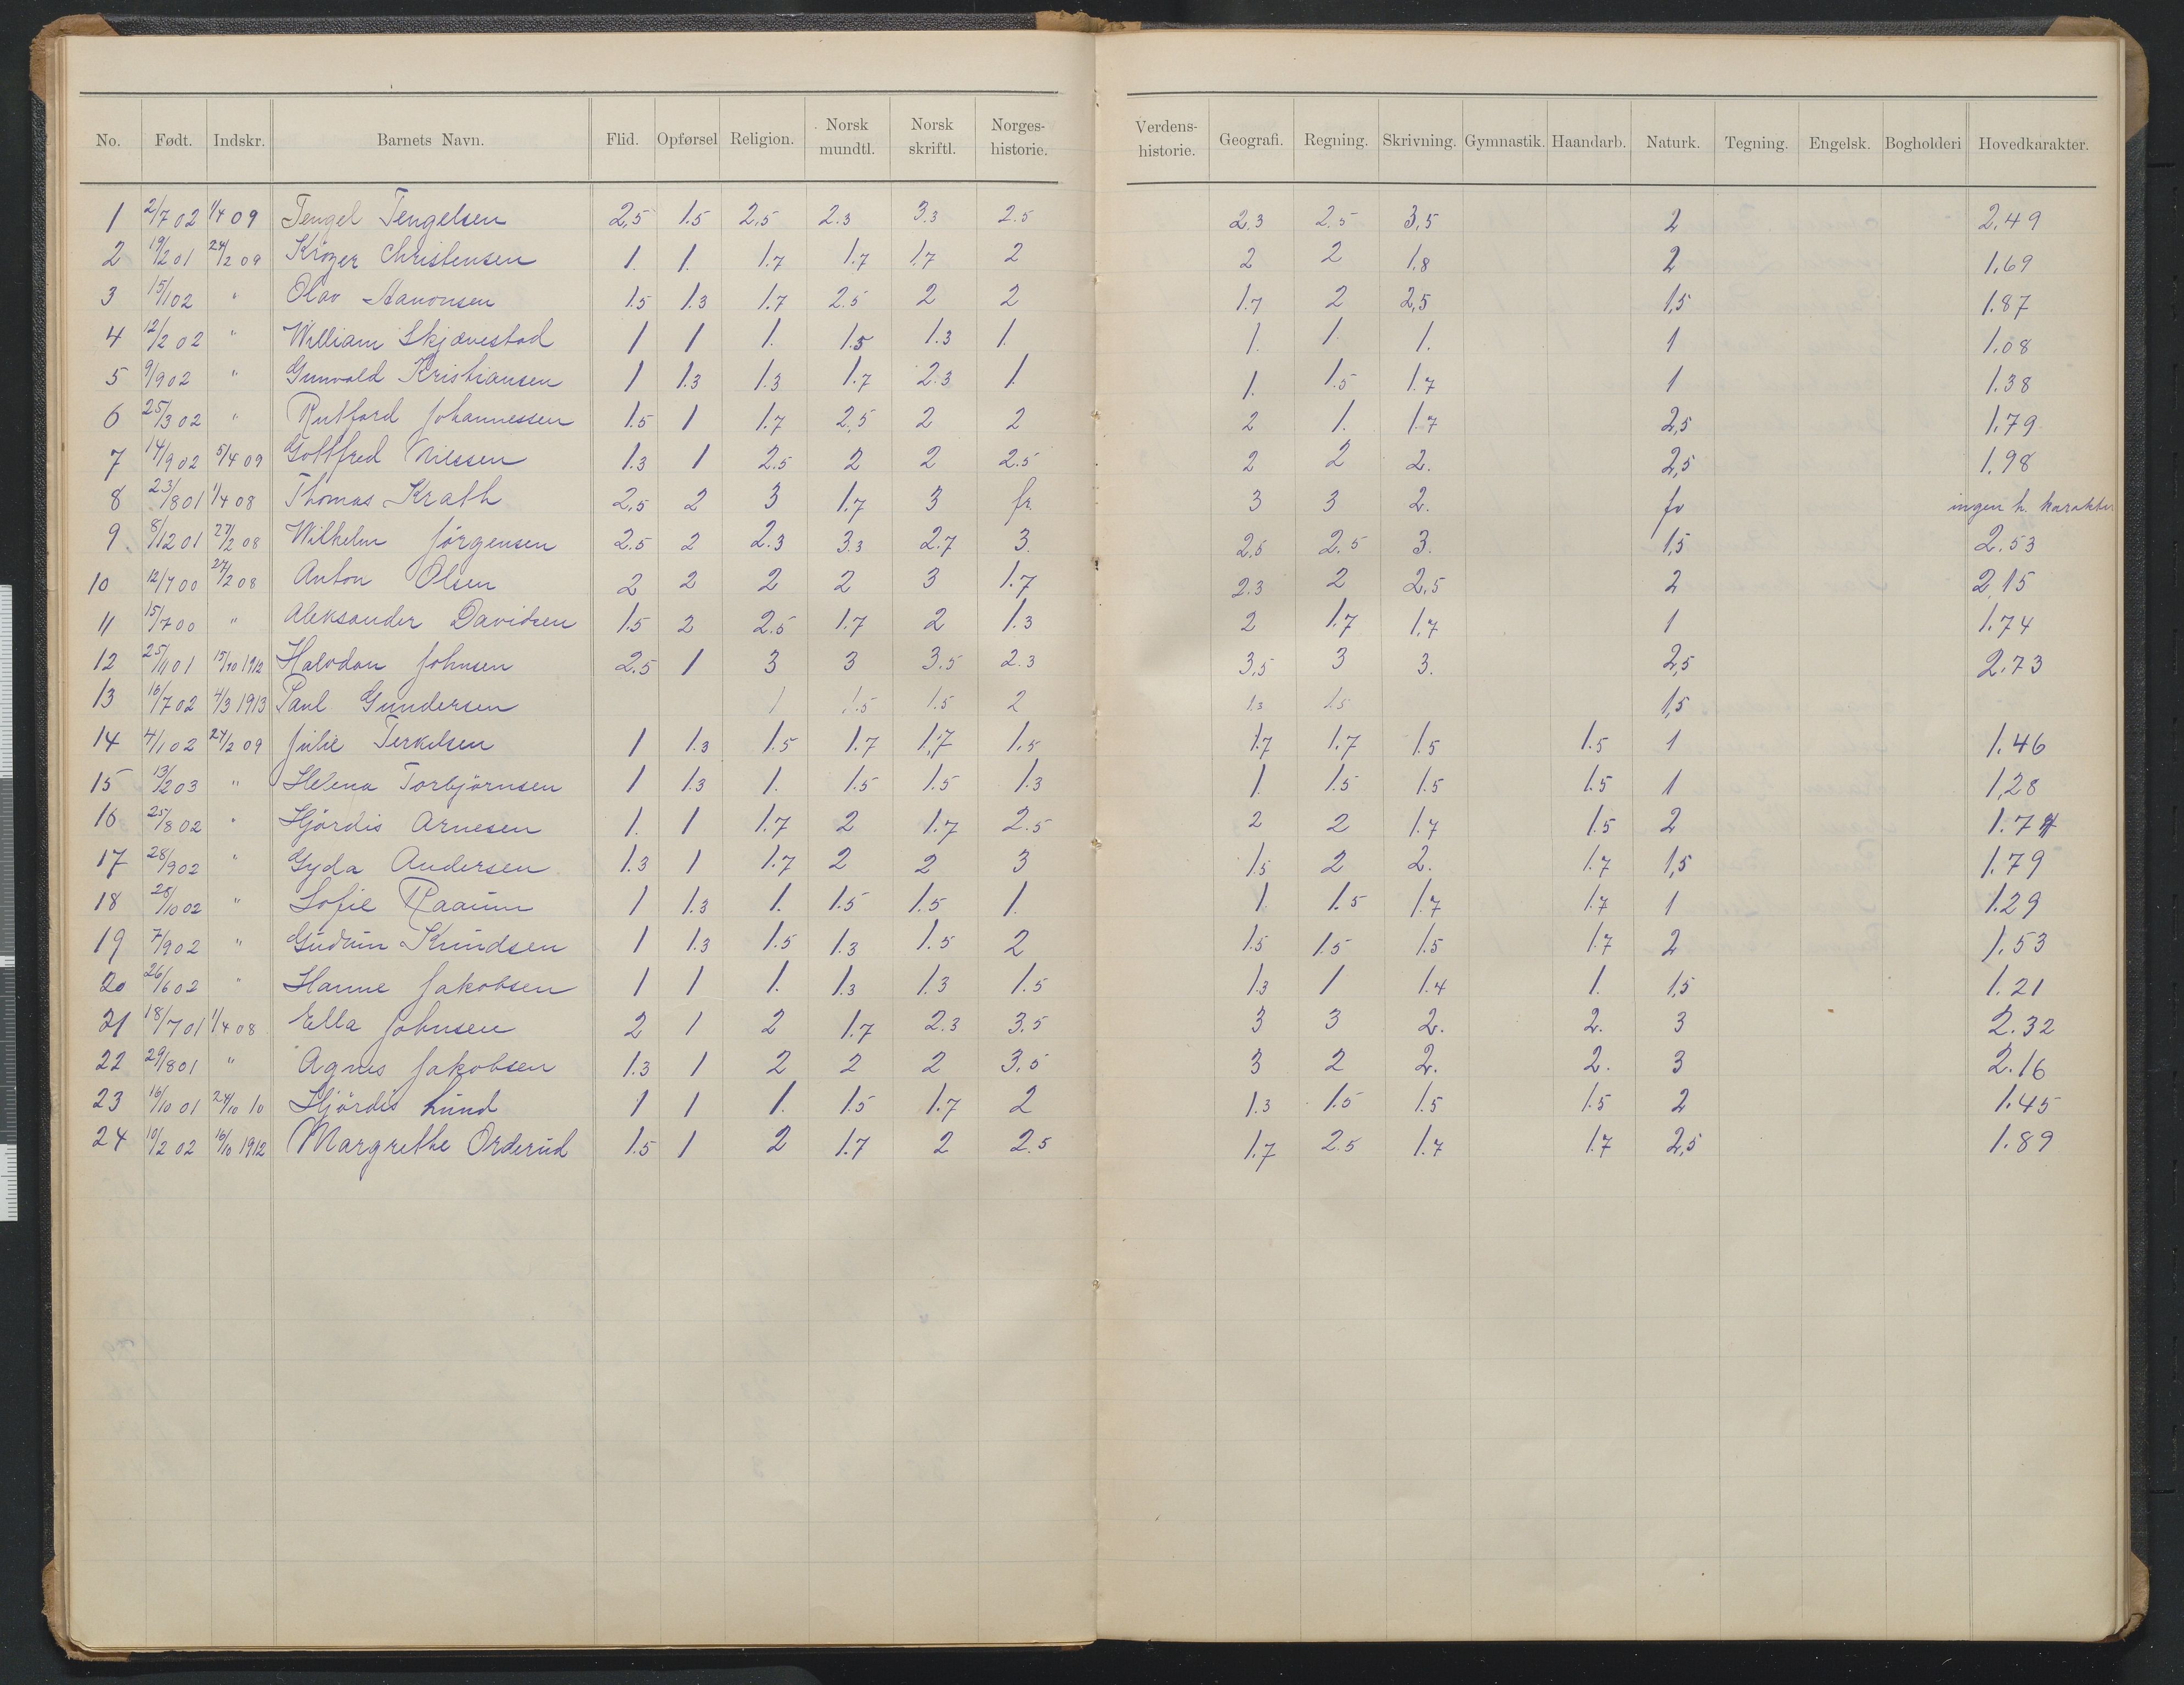 No. Født. Indskr. Barnets Navn. Flid. Opførsel Religion. Norsk mundtl. Norsk skriftl. Norges-historie. Verdens-historie. Geografi. Regning. Skrivning. Gymnastik. Haandarb. Naturk. Tegning. Engelsk. Bogholderi Hovedkarakter.
1 2/7 02 1/4 09 Tengel Tengelsen 2,5 1.5 2,5 2.3 3.3 2.5 2.3 2.5 3,5 2 2,49
2 19/2 01 24/2 09 Kröger Christensen 1. 1. 1.7 1.7 1.7 2 2 2 1.8 2 1.69
3 15/1 02 " Olav Aanonsen 1.5 1.3 1.7 2.5 2 2 1.7 2 2,5 1,5 1.87
4 12/2 02 " William Skjævestad 1 1 1. 1.5 1.3 1. 1. 1. 1. 1 1.08
5 9/9 02 " Gunvald Kristiansen 1 1.3 1.3 1.7 2.3 1. 1. 1.5 1.7 1 1.38
6 25/3 02 " Rutford Johannessen 1.5 1 1.7 2,5 2 2 2 1. 1.7 2,5 1.79
7 14/9 02 5/4 09 Gottfred Nilssen 1.3 1 2.5 2 2 2.5 2 2 2. 2,5 1.98
8 23/8 01 1/4 08 Thomas Krath 2,5 2 3 1.7 3 fr. 3 3 2. fr ingen h. karakter
9 8/12 01 27/2 08 Wilhelm Jörgensen 2.5 2 2.3 3.3 2.7 3. 2,5 2.5 3. 1,5 2.53
10 12/7 00 27/2 08 Anton Olsen 2 2 2 2 3 1.7 2.3 2 2,5 2 2,15
11 15/7 00 " Aleksander Davidsen 1.5 2 2.5 1.7 2 1.3 2 1.7 1.7 1 1.74
12 25/11 01 15/10 1912 Halvdan Johnsen 2.5 1 3 3 3.5 2.3 3,5 3 3. 2,5 2.73
13 16/7 02 4/3 1913 Paul Gundersen 1 1.5 1.5 2 1.3 1.5 1,5
14 4/1 02 24/2 09 Julie Terkelsen 1 1.3 1.5 1.7 1,7 1.5 1.7 1.7 1.5 1.5 1 1.46
15 13/2 03 " Helena Torbjörnsen 1 1.3 1. 1.5 1.5 1.3 1. 1.5 1.5 1.5 1 1,28
16 25/8 02 " Hjördis Arnesen 1. 1 1.7 2 1.7 2.5 2 2 1.7 1.5 2 1.74
17 28/9 02 " Gyda Andersen 1.3 1 1.7 2 2 3 1.5 2 2. 1.7 1,5 1.79
18 28/10 02 " Sofie Raaum 1 1.3 1. 1.5 1.5 1. 1. 1.5 1.7 1.7 1 1.29
19 7/9 02 " Gudrun Knudsen 1 1.3 1.5 1.3 1.5 2 1.5 1.5 1.5 1.7 2 1.53
20 26/6 02 " Hanne Jakobsen 1 1 1. 1.3 1.3 1.5 1.3 1 1.4 1. 1,5 1.21
21 18/7 01 1/4 08 Ella Johnsen 2 1 2 1.7 2.3 3,5 3 3 2. 2. 3 2.32
22 29/8 01 " Agnes Jakobsen 1.3 1 2 2 2 3,5 3 2 2. 2. 3 2.16
23 16/10 01 24/10 10 Hjördis Lund 1 1 1. 1.5 1.7 2 1.3 1.5 1.5 1.5 2 1.45
24 10/2 02 16/10 1912 Margrethe Orderud 1.5 1 2 1.7 2 2.5 1.7 2.5 1.7 1.7 2,5 1.89